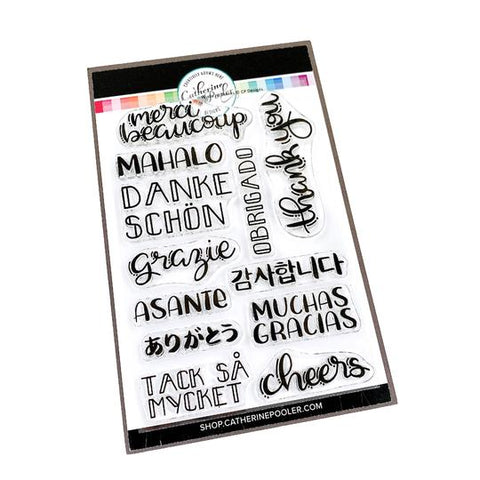 Catherine
CP Designs
merci
beaucoup
MAHALO
DANKE
SCHÖN
grazie
ASANTE
ありがとう
TACK SÅ
MYCKET
OBRIGADO
thank you
감사합니다
MUCHAS
GRACIAS
cheers
SHOP.CATHERINEPOOLER.COM